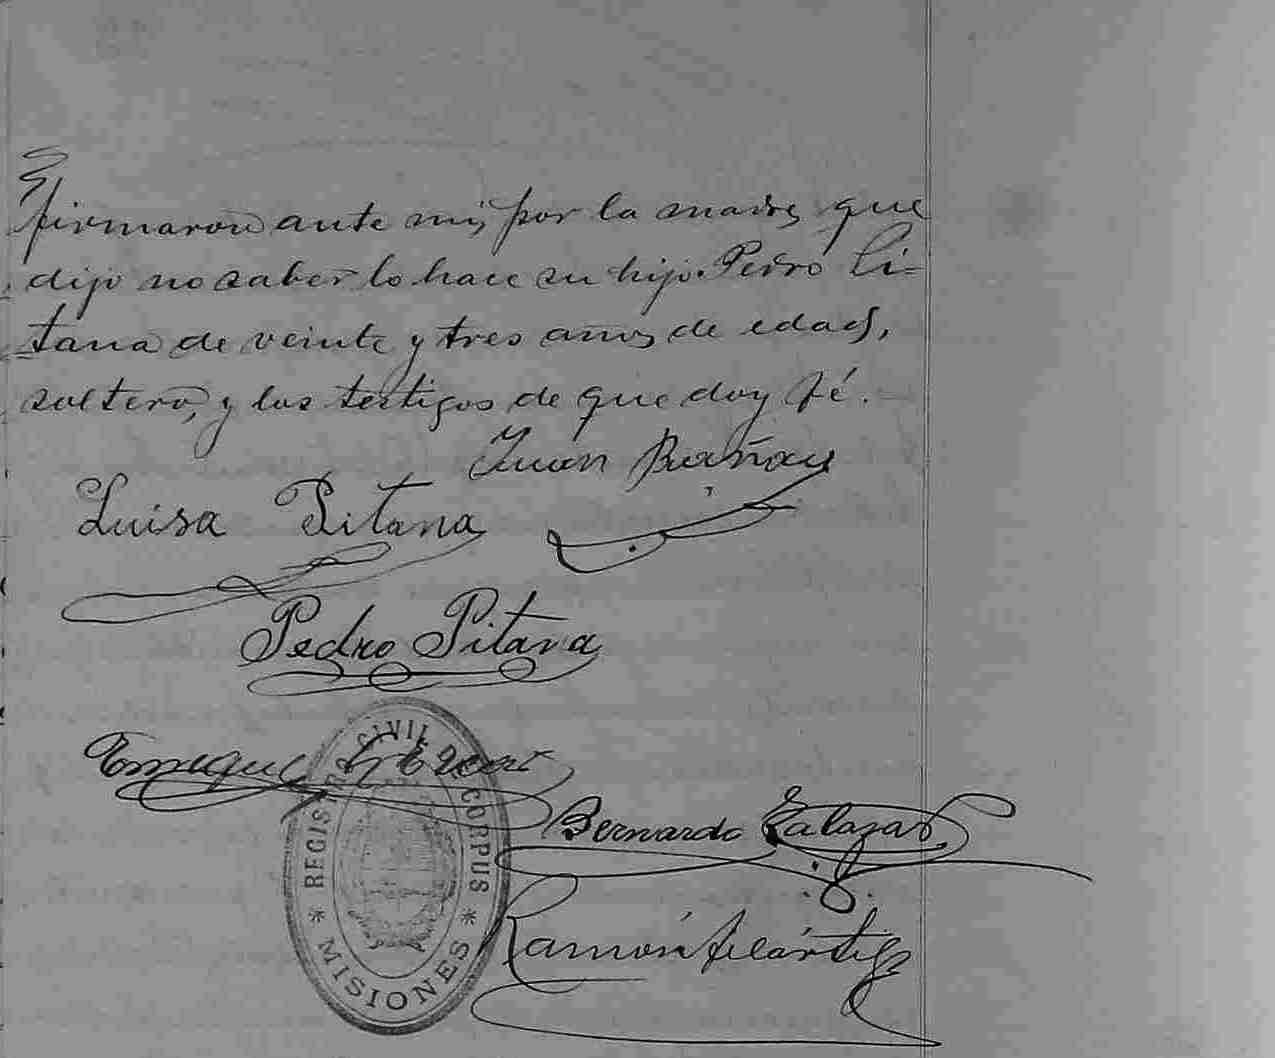 firmaron ante mi, por la madre que
dijo no saber lo hace su hijo Pedro Pi=
tana de veinte y tres años de edad,
soltero, y los testigos de que doy fé.
Juan
Luisa Pitana
Pedro Pitana
REGISTRO CIVIL DE CORPUS
* MISIONES *
Bernardo Salazar
Ramón Filártiga